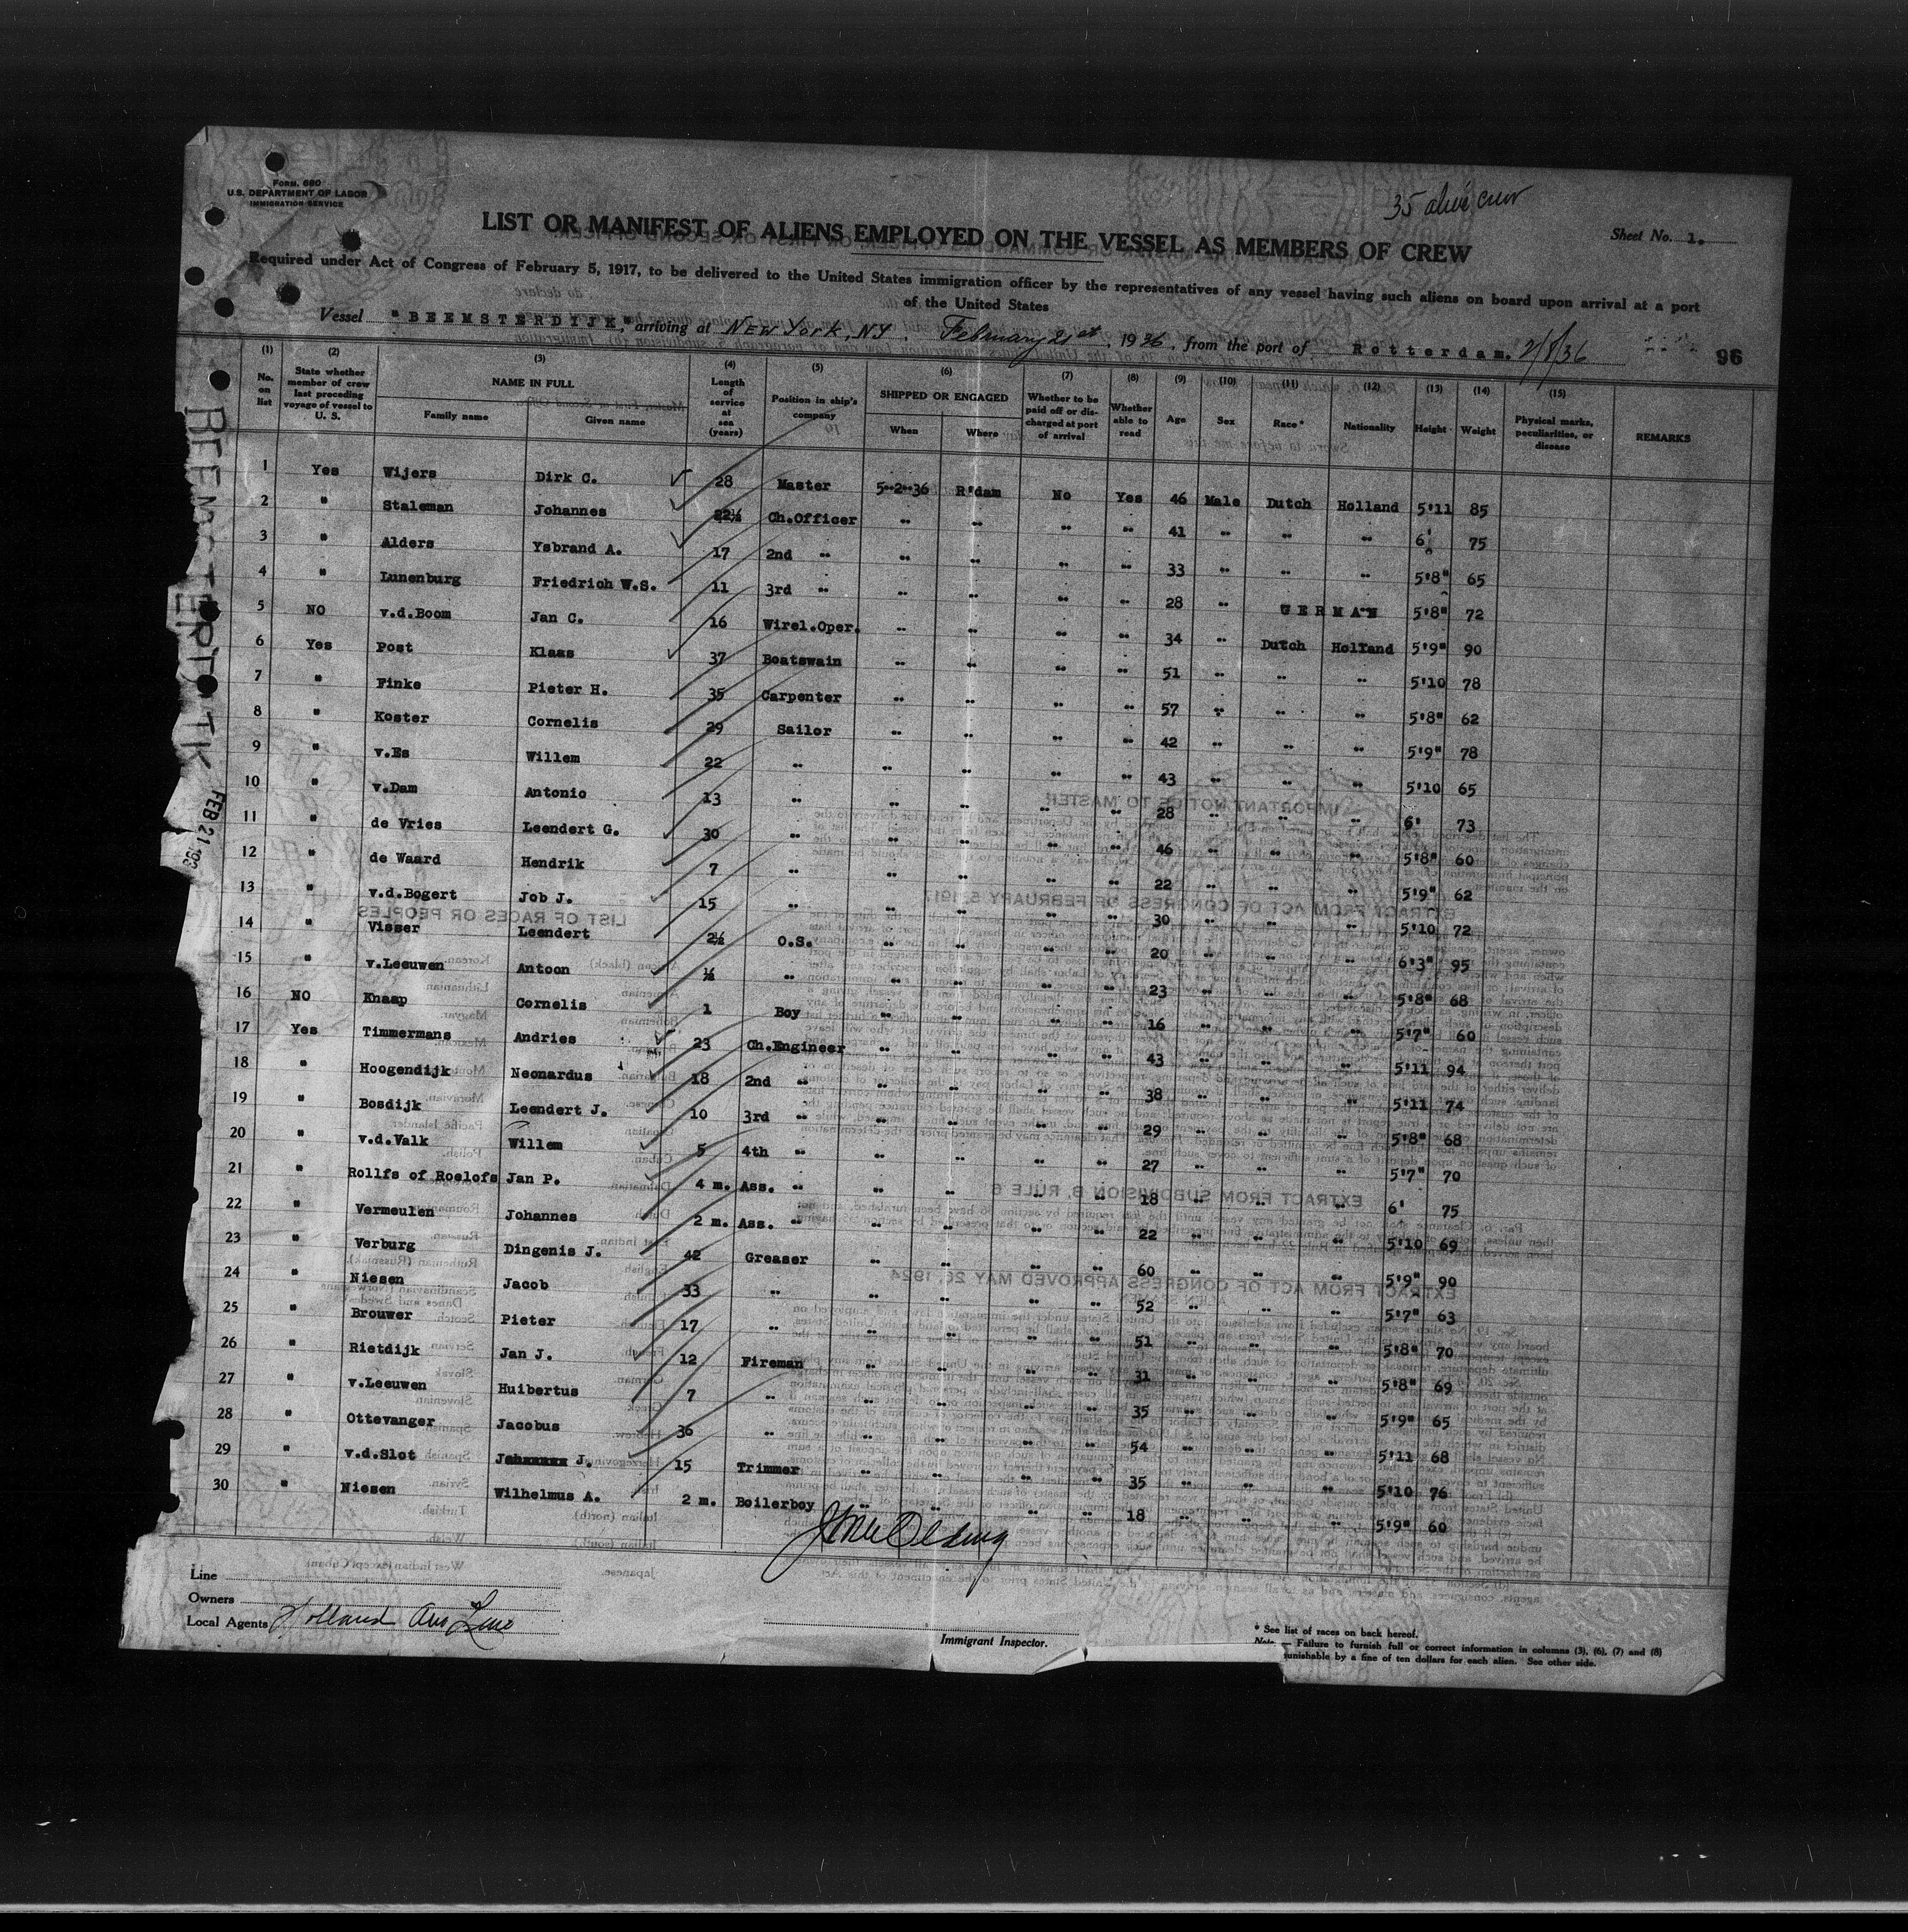 Form 680
U.S. DEPARTMENT OF LABOR
IMMIGRATION SERVICE
35 alien crew
LIST OR MANIFEST OF ALIENS EMPLOYED ON THE VESSEL AS MEMBERS OF CREW
Sheet No. 1.
Required under Act of Congress of February 5, 1917, to be delivered to the United States immigration officer by the representatives of any vessel having such aliens on board upon arrival at a port
of the United States
Vessel "BEEMSTERDIJK", arriving at New York, NY. February 21st, 1936, from the port of Rotterdam. 2/8/36 96
(1) No. on list (2) State whether member of crew last preceding voyage of vessel to U. S. (3) NAME IN FULL Family name Given name (4) Length of service at sea (years) (5) Position in ship's company (6) SHIPPED OR ENGAGED When Where (7) Whether to be paid off or discharged at port of arrival (8) Whether able to read (9) Age (10) Sex (11) Race* (12) Nationality (13) Height (14) Weight (15) Physical marks, peculiarities, or disease REMARKS
1 Yes Wijers Dirk C. 28 Master 5-2-36 R'dam No Yes 46 Male Dutch Holland 5'11 85
2 " Staleman Johannes 22½ Ch.Officer " " " " 41 " " " 6' 75
3 " Alders Ysbrand A. 17 2nd " " " " " 33 " " " 5'8" 65
4 " Lunenburg Friedrich W.S. 11 3rd " " " " " 28 " GERMAN 5'8" 72
5 NO v.d.Boom Jan C. 16 Wirel.Oper. " " " " 34 " Dutch Holland 5'9" 90
6 Yes Post Klaas 37 Boatswain " " " " 51 " " " 5'10 78
7 " Finke Pieter H. 35 Carpenter " " " " 57 " " " 5'8" 62
8 " Koster Cornelis 29 Sailor " " " " 42 " " " 5'9" 78
9 " v.Es Willem 22 " " " " " 43 " " " 5'10 65
10 " v.Dam Antonio 13 " " " " " 28 " " " 6' 73
11 " de Vries Leendert G. 30 " " " " " 46 " " " 5'8" 60
12 " de Waard Hendrik 7 " " " " " 22 " " " 5'9" 62
13 " v.d.Bogert Job J. 15 " " " " " 30 " " " 5'10 72
14 " Visser Leendert 2½ O.S. " " " " 20 " " " 6'3" 95
15 " v.Leeuwen Antoon ½ " " " " " 23 " " " 5'8" 68
16 NO Knaap Cornelis 1 Boy " " " " 16 " " " 5'7" 60
17 Yes Timmermans Andries 23 Ch.Engineer " " " " 43 " " " 5'11 94
18 " Hoogendijk Neonardus 18 2nd " " " " " 38 " " " 5'11 74
19 " Bosdijk Leendert J. 10 3rd " " " " " 29 " " " 5'8" 68
20 " v.d.Valk Willem 5 4th " " " " " 27 " " " 5'7" 70
21 " Rollfs of Roelofs Jan P. 4 m. Ass. " " " " " 18 " " " 6' 75
22 " Vermeulen Johannes 2 m. Ass. " " " " " 22 " " " 5'10 69
23 " Verburg Dingenis J. 42 Greaser " " " " 60 " " " 5'9" 90
24 " Niesen Jacob 33 " " " " " 52 " " " 5'7" 63
25 " Brouwer Pieter 17 " " " " " 51 " " " 5'8" 70
26 " Rietdijk Jan J. 12 Fireman " " " " 31 " " " 5'8" 69
27 " v.Leeuwen Huibertus 7 " " " " " 35 " " " 5'9" 65
28 " Ottevanger Jacobus 36 " " " " " 54 " " " 5'11 68
29 " v.d.Slot J. 15 Trimmer " " " " 35 " " " 5'10 76
30 " Niesen Wilhelmus A. 2 m. Boilerboy " " " " 18 " " " 5'9" 60
BEEMSTERDIJK
FEB 21 193
Line
Owners
Local Agents Holland Am Line
Immigrant Inspector.
* See list of races on back hereof.
Note.— Failure to furnish full or correct information in columns (3), (6), (7) and (8)
punishable by a fine of ten dollars for each alien. See other side.